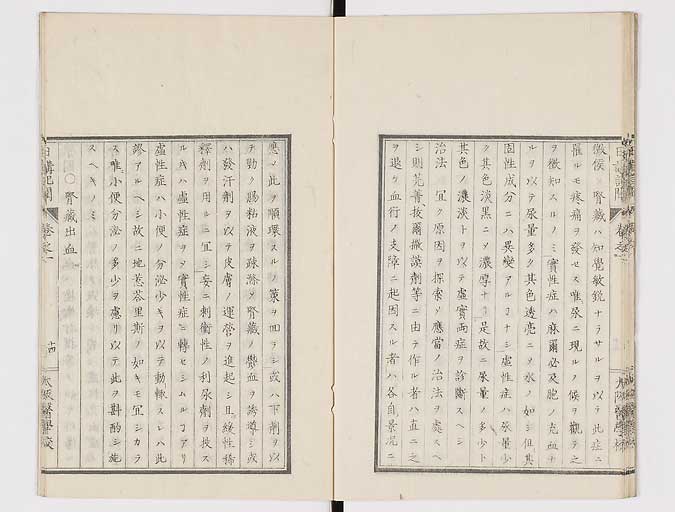 徴候 腎臓ハ知覺敏鋭ナラサルヲ以テ此症ニ
罹ルモ疼痛ヲ發セス唯尿ニ現ルノ候ヲ觀テ之
ヲ徴知スルノミ實性症ハ麻爾必及胞ノ充血ナ
ルヲ以テ尿量多ク其色透亮ニノ水ノ如シ但其
固性成分ニハ異變アルヿナシ虚性症ハ尿量少
ク其色淡黒ニノ濃厚ナリ是故ニ尿量ノ多少ト
其色ノ濃淡トヲ以テ虚實両症ヲ診斷スヘシ
治法 宜ク原因ヲ探索ノ應當ノ治法ヲ處スヘ
シ則芫菁拔爾撒謨劑等ニ由テ作ル者ハ直ニ之
ヲ退ケ血行ノ支障ニ起因スル者ハ各自景況ニ
應ノ此ヲ順環スルノ策ヲ回ラシ或ハ下劑ヲ以
テ勁ノ腸粘液ヲ疎滌ノ腎臓ノ欝血ヲ誘導シ或
ハ發汗劑ヲ以テ皮膚ノ運營ヲ進起シ且緩性稀
釋劑ヲ用ルニ宜シ妄ニ刺衝性ノ利尿劑ヲ投ス
ルキハ虚性症ヲノ實性症ニ轉セシムルヿアリ
虚性症ハ小便ノ分泌少キヲ以テ動輙スレハ此
繆アルヘシ故ニ地芨荅里斯ノ如キモ宜シカラ
ス唯小便分泌ノ多少ヲ慮リ以テ此ヲ斟酌シ施
スヘキノミ
○腎臓出血
日講記聞 卷之一
十四
大阪醫學校